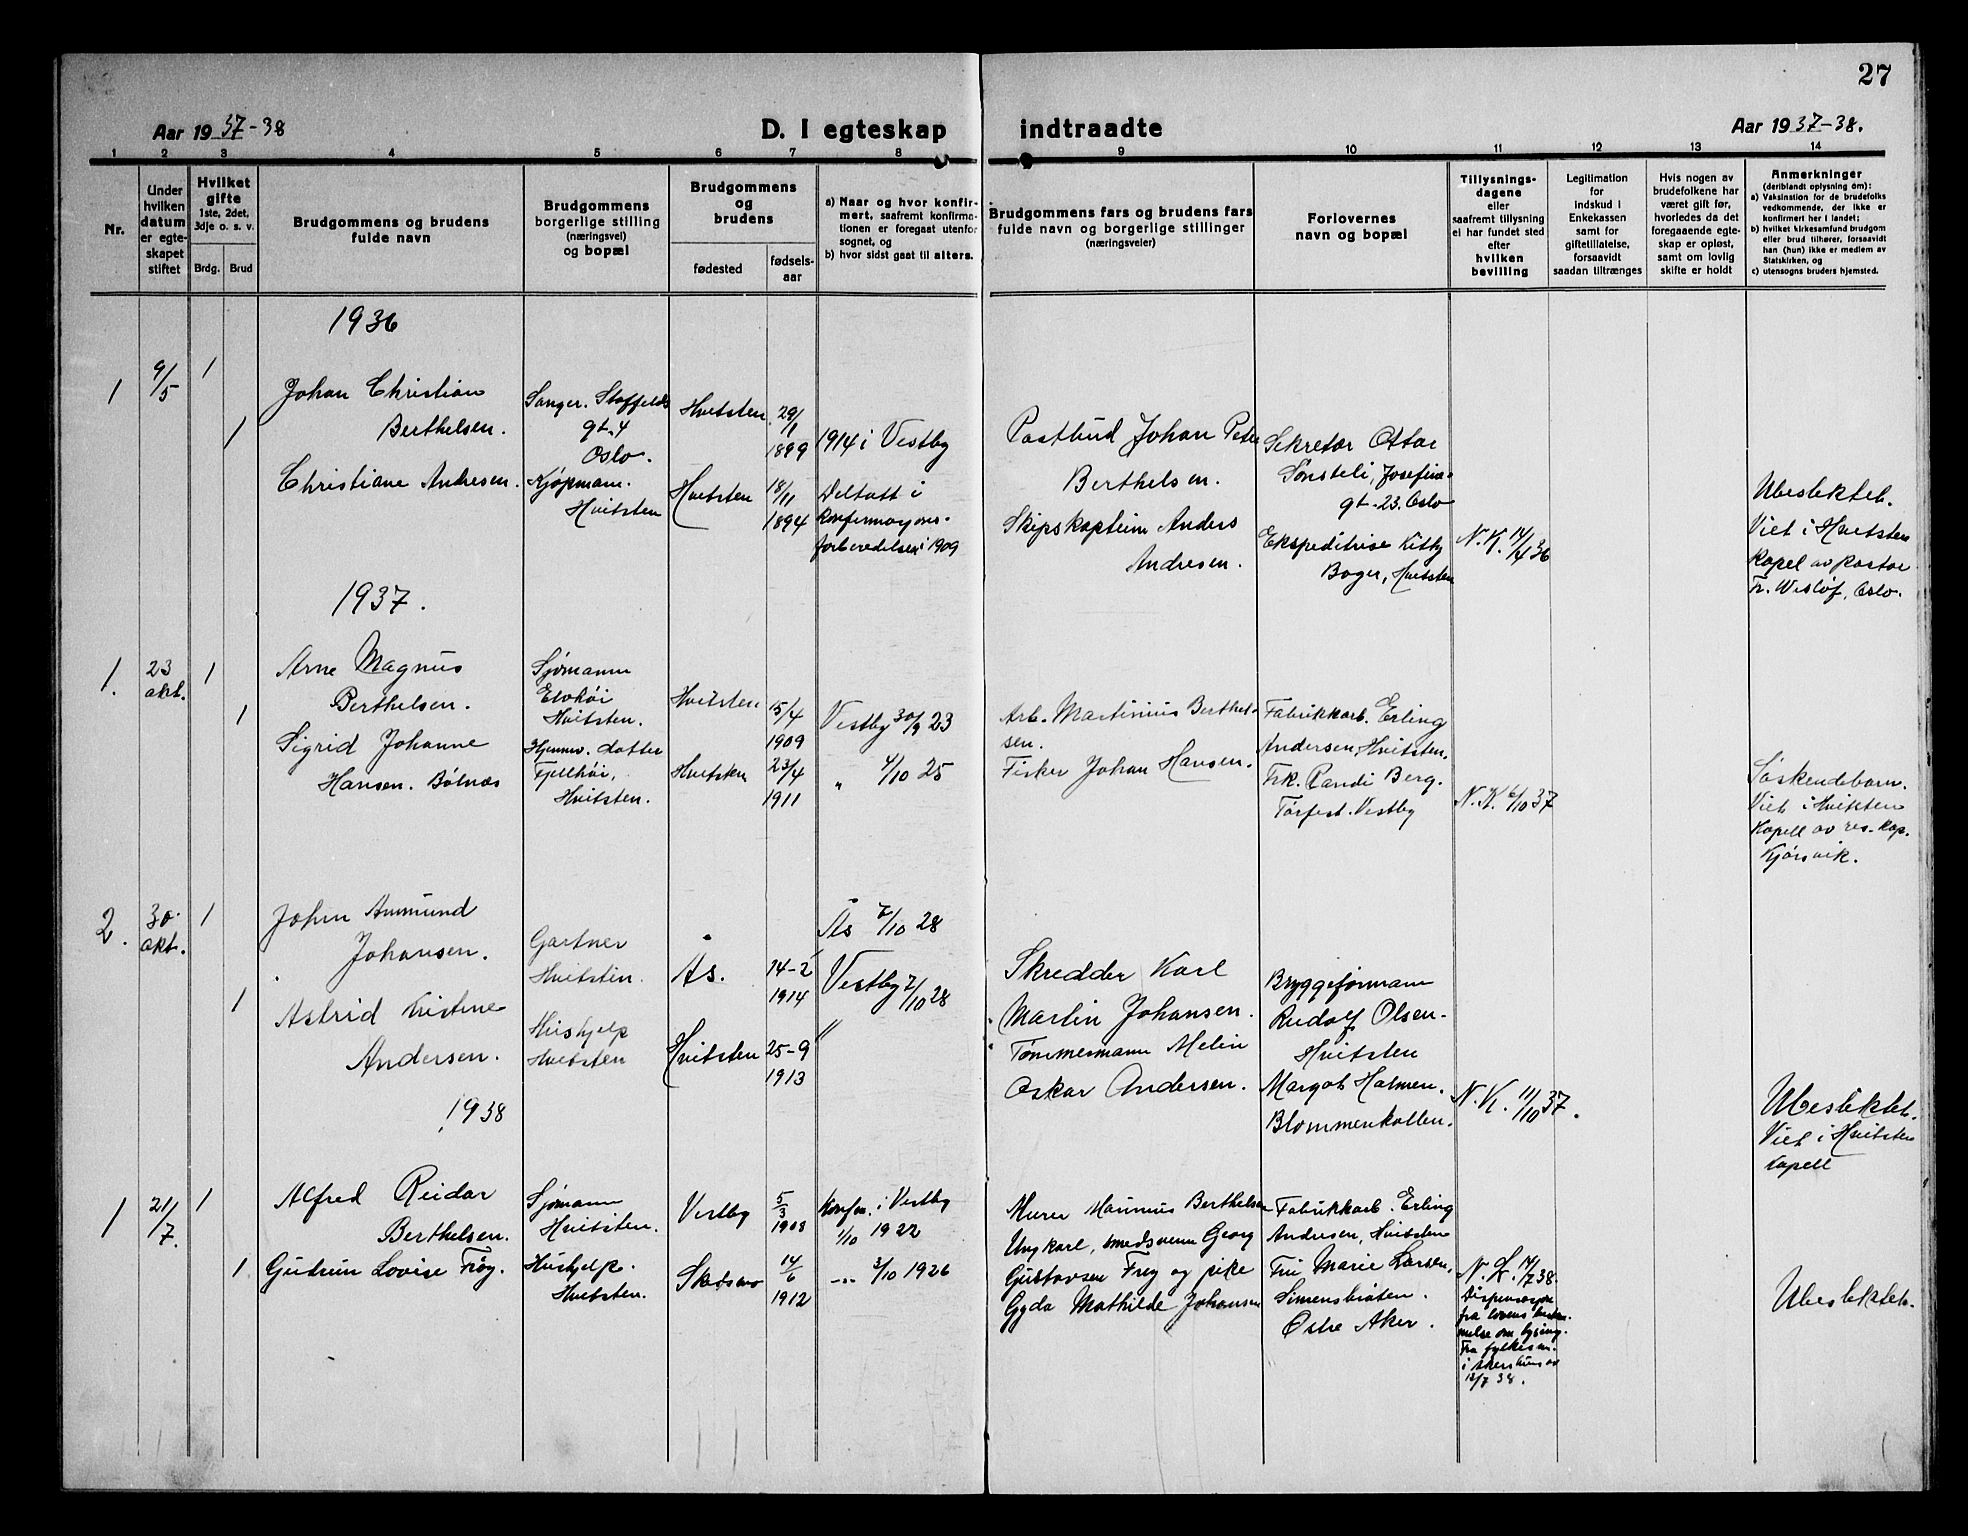 27
Aar 1937-38
D. I egteskap
indtraadte
Aar 1937-38.
1
2
3
4
5
6
7
8
9
10
11
12
13
14
Nr.
Under
hvilken
datum
er egte-
skapet
stiftet
Hvilket
gifte
1ste, 2det,
3dje o. s. v.
Brdg.
Brud
Brudgommens og brudens
fulde navn
Brudgommens
borgerlige stilling
(næringsvei)
og bopæl
Brudgommens
og
brudens
fødested
fødsels-
aar
a) Naar og hvor konfir-
mert, saafremt konfirma-
tionen er foregaat utenfor
sognet, og
b) hvor sidst gaat til alters.
Brudgommens fars og brudens fars
fulde navn og borgerlige stillinger
(næringsveier)
Forlovernes
navn og bopæl
Tillysnings-
dagene
eller
saafremt tillysning
ei har fundet sted
efter
hvilken
bevilling
Legitimation
for
indskud i
Enkekassen
samt for
giftetillatelse,
forsaavidt
saadan tiltrænges
Hvis nogen av
brudefolkene har
været gift før,
hvorledes da det
foregaaende egte-
skap er opløst,
samt om lovlig
skifte er holdt
Anmerkninger
(deriblandt oplysning om):
a) Vaksination for de brudefolks
vedkommende, der ikke er
konfirmert her i landet;
b) hvilket kirkesamfund brudgom
eller brud tilhører, forsaavidt
han (hun) ikke er medlem av
Statskirken, og
c) utensogns bruders hjemsted.
1936
1
9/5
1
1
Johan Christian
Berthelsen.
Christiane Andresen.
Sanger. Stoffelds
gt. 4
Oslo.
Kjøpmann.
Hvitsten
Hvitsten
29/1
1899
Hvitsten
18/11
1894
1914 i Vestby
Deltatt i
konfirmasjons-
forberedelsen i 1909
Postbud Johan Peter
Berthelsen.
Skipskaptein Anders
Andresen.
Sekretær Ottar
Sønsteli, Josefine-
gt. 23. Oslo
Ekspeditrise Kitty
Boger, Hvitsten
N.K. 14/4 36
Ubeslektet.
Viet i Hvitsten
kapel av pastor
Fr. Wisløf, Oslo.
1937.
1.
23
okt.
1
1
Arne Magnus
Berthelsen.
Sigrid Johanne
Hansen. Bølnæs
Sjømann
Elvhøi
Hvitsten.
Hjemmev. datter
Fjellhøi,
Hvitsten.
Hvitsten
15/4
1909
Hvitsten
23/4
1911
Vestby 30/9 23
" 4/10 25
Arb. Martinius Berthel-
sen.
Fisker Johan Hansen.
Fabrikkarb. Erling
Andersen, Hvitsten.
Frk. Randi Berg.
Torfest. Vestby
N.K. 6/10 37
Søskendebarn.
Viet i Hvitsten
Kapell av res. kap.
Kjørsvik.
2.
30.
okt.
1
1
John Anmund
Johansen.
Astrid Kristine
Andersen.
Gartner
Hvitsten.
Hushjelp
Hvitsten
Ås.
14-2
1914
Hvitsten
25-9
1913
Ås 7/10 28
Vestby 7/10 28
"
Skredder Karl
Martin Johansen.
Tømmermann Melin
Oskar Andersen.
Bryggeformann
Rudolf Olsen.
Hvitsten
Margot Holmen.
Blommenkollen.
N.K. 11/10 37.
Ubeslektet.
Viet i Hvitsten
Kapell
1938
1
21/7.
1
1
Alfred Reidar
Berthelsen.
Gudrun Lovise Frøg.
Sjømann
Hvitsten.
Hushjelp.
Hvitsten.
Vestby
5/3
1908
Skedsmo
14/6
1912
Konfm. i Vestby
1/10 1922
-"- 3/10 1926
Murer Marinius Berthelsen
Ungkarl, smedsvenn Georg
Gustavsen Frøg og pike
Gyda Mathilde Johansen
Fabrikkarb. Erling
Andresen, Hvitsten
Fru Marie Larsen,
Simensbråten.
Østre Aker.
N.K. 14/7 38.
Dispensasjon
fra lovens bestem-
melse om lysing.
Fra fylkesm.
i Akershus av
12/7 38.
Ubeslektet.